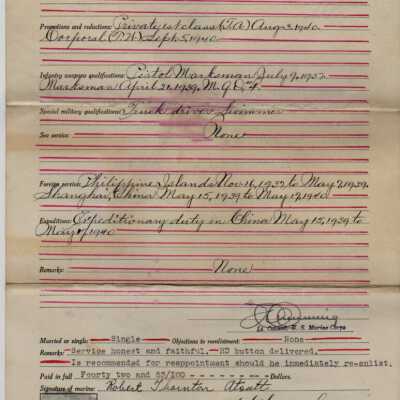 Promotions and reductions: Private 1st class (TA) Aug 3, 1940
Corporal (PW) Sept 5, 1940
Infantry weapons qualifications: Pistol Marksman July 9, 1937
Marksman April 21, 1939, M.G.
Special military qualifications: Truck driver, Swimmer
Sea service: None
Foreign service: Philippine Islands Nov 16, 1937 to May 9, 1939,
Shanghai, China May 15, 1939 to May 17, 1940
Expeditions: Expeditionary duty in China May 15, 1939 to
May 1940
Remarks: None
Lt. Colonel, U. S. Marine Corps
Married or single: Single Objections to reenlistment: None
Remarks: Service honest and faithful. HD button delivered.
Is recommended for reappointment should he immediately re-enlist.
Paid in full Fourty two and 83/100 - - - - - - - - Dollars.
Signature of marine: Robert Thornton